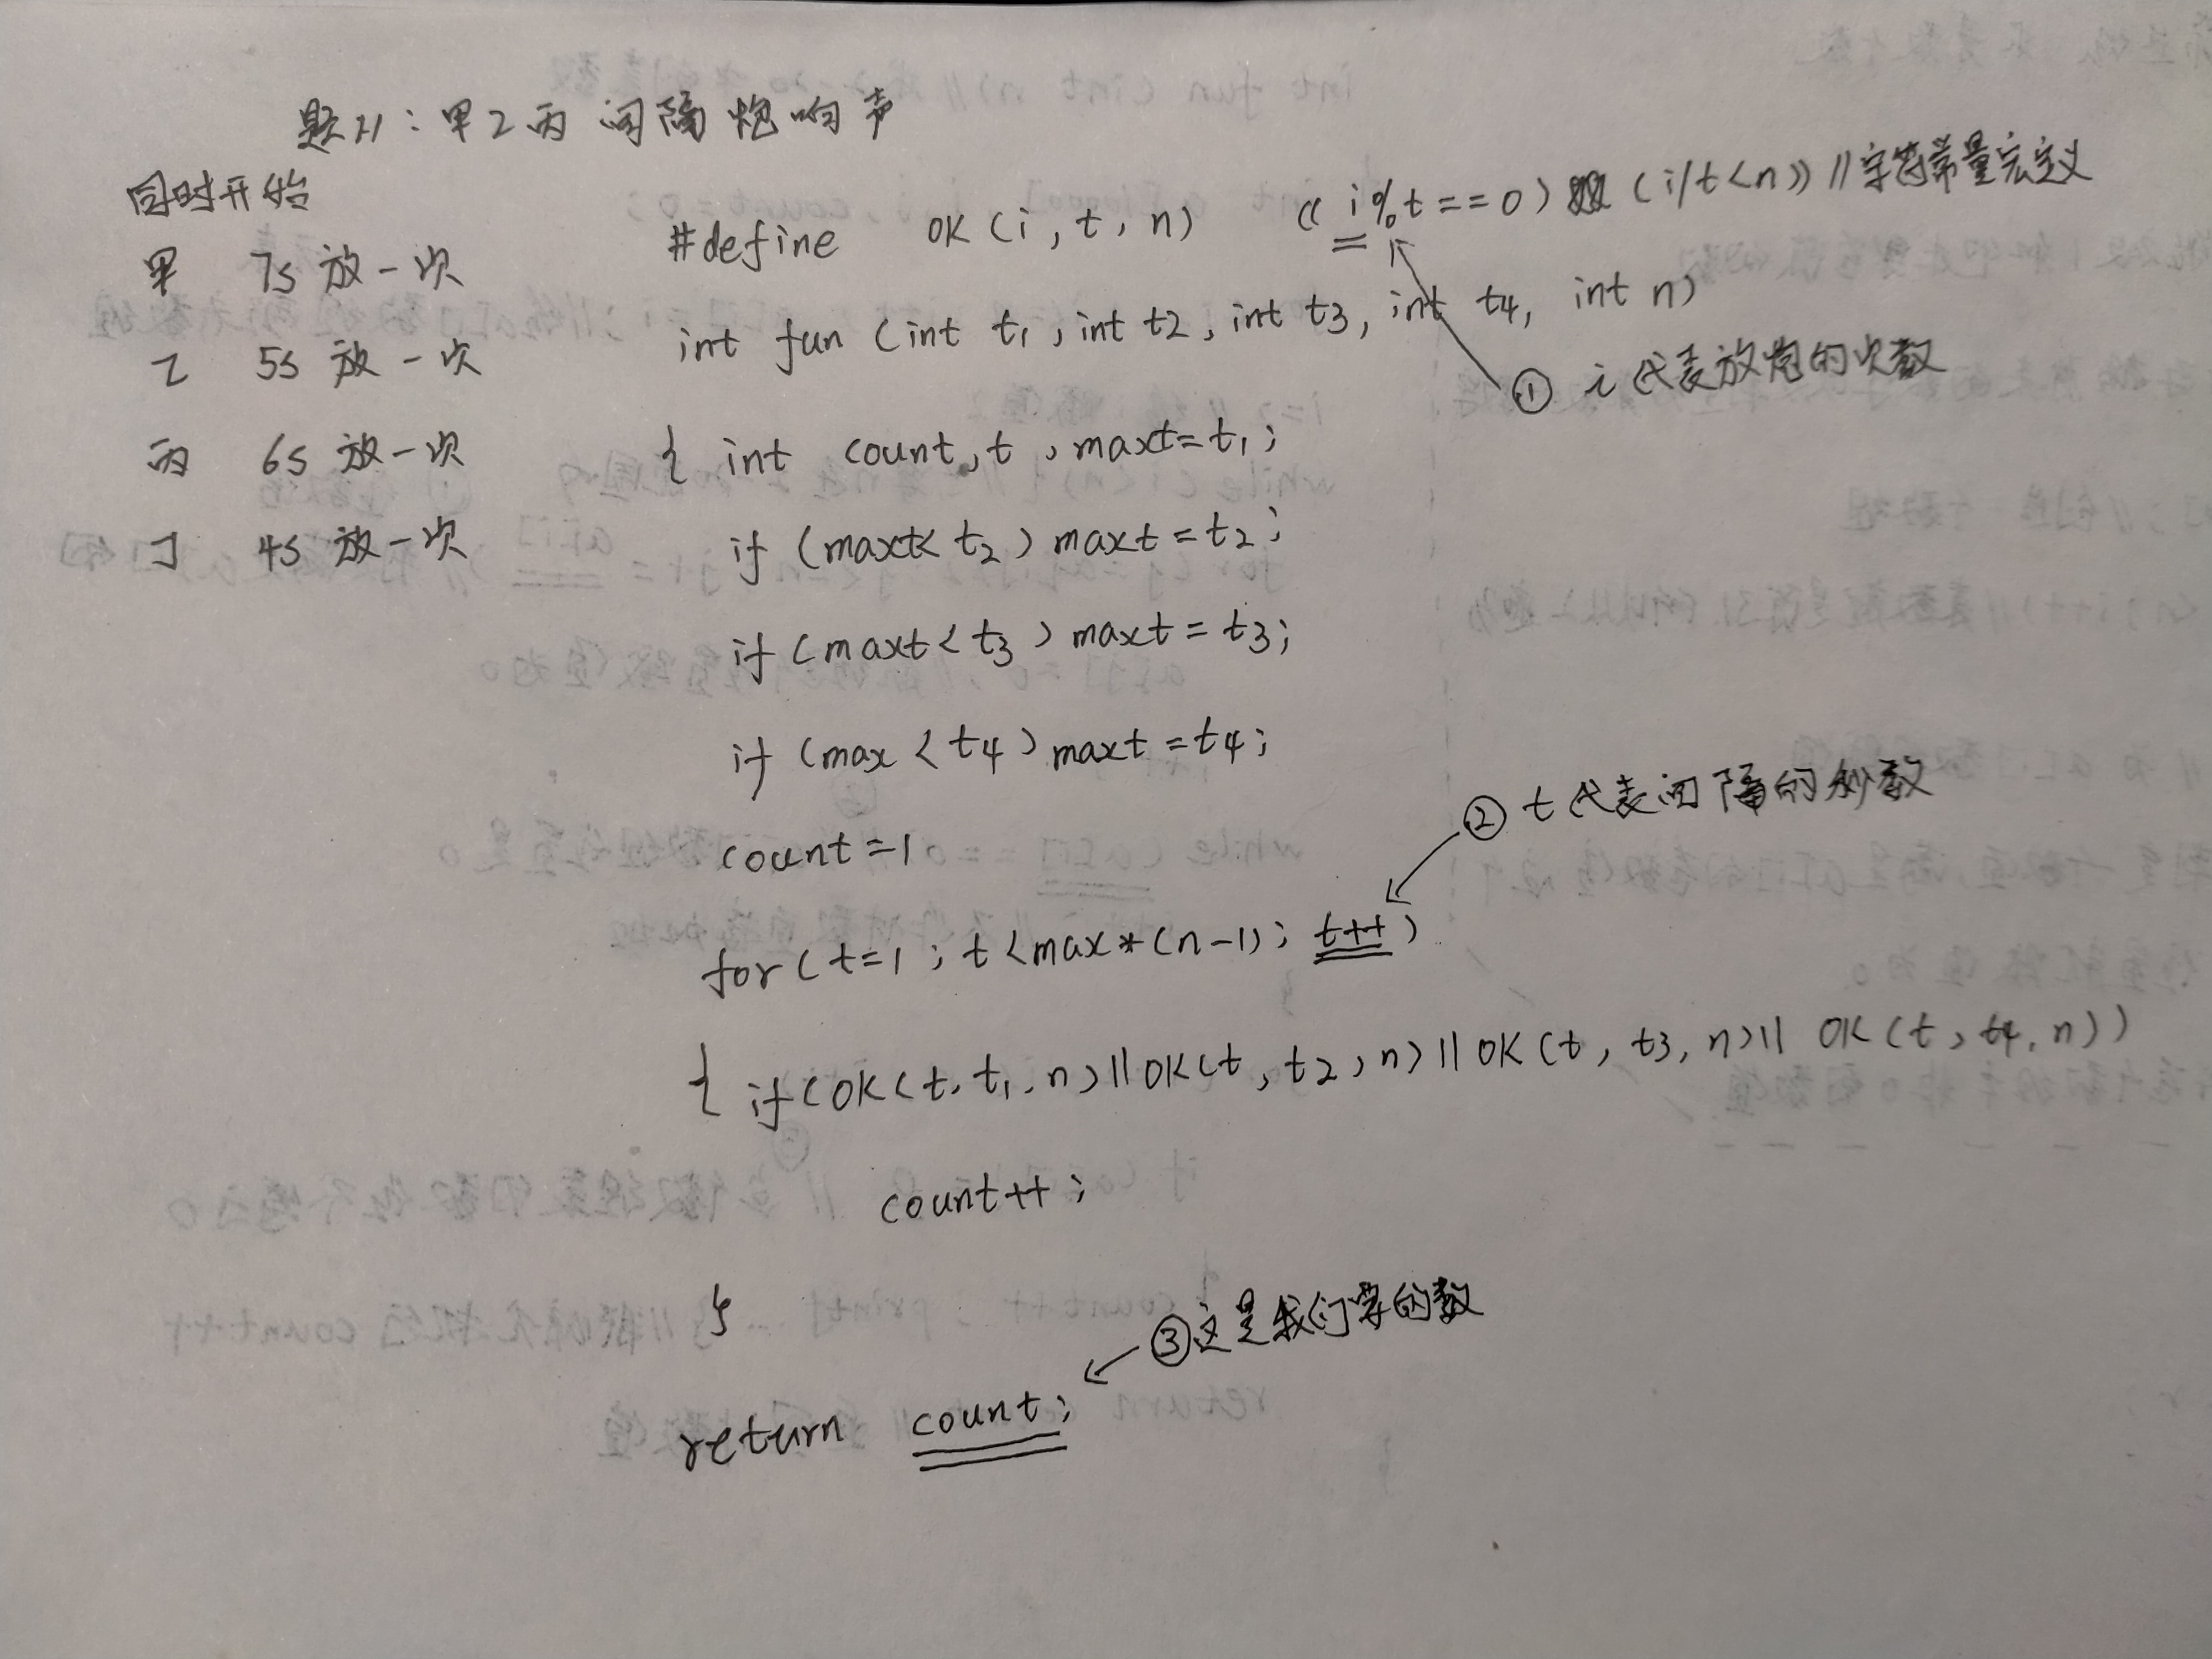 题21：甲乙丙间隔炮响声
同时开始
甲 7s 放一次
乙 5s 放一次
丙 6s 放一次
丁 4s 放一次
#define OK(i,t,n) ((i%t==0) && (i/t<n)) //字符常量宏定义
int fun (int t1, int t2, int t3, int t4, int n)
① i代表放炮的次数
{ int count, t, maxt=t1;
if (maxt< t2) maxt=t2;
if (maxt< t3) maxt=t3;
if (max < t4) maxt=t4;
count=1
② t代表间隔的秒数
for(t=1; t<max*(n-1); t++)
{ if(OK(t,t1,n)||OK(t,t2,n)||OK(t,t3,n)||OK(t,t4,n))
count++;
}
③这是我们要的数
return count;